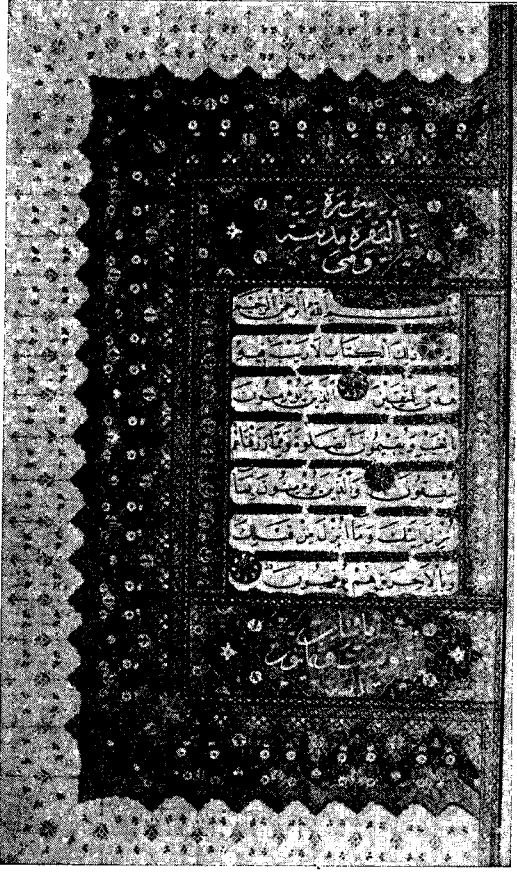 سورة
البقرة مدنية
وهي
بسم الله الرحمن الرحيم
ذلك الكتاب لا ريب فيه
هدى للمتقين الذين يؤمنون
بالغيب ويقيمون الصلوة ومما رزقناهم
ينفقون والذين يؤمنون بما
انزل اليك وما انزل من قبلك
وبالاخرة هم يوقنون
مائتان